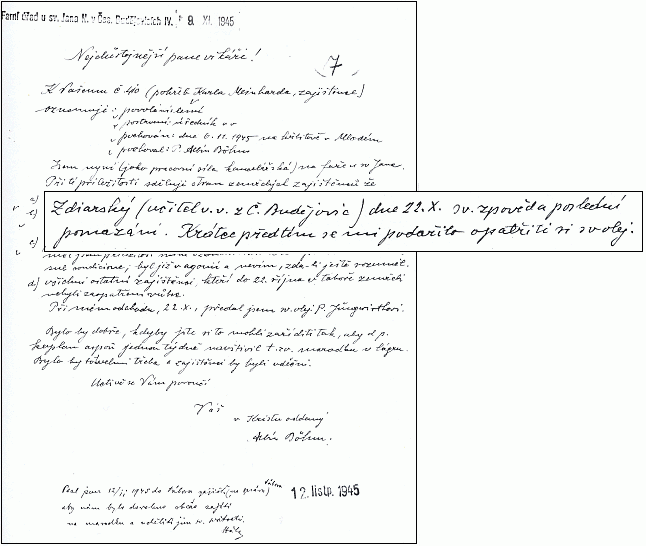 Farní úřad u sv. Jana N. v Čes. Budějovicích IV. 9. XI. 1945
Nejdůstojnější pane vikáři!
7
K Vašemu č. 40 (pohřeb Karla Meinharda, zajištěnce)
oznamuji: povolání
postavení: úředník v. v.
pochován: dne 6. 11. 1945 na hřbitově v Mladém
pochoval: P. Albín Böhm
Jsem nyní (jako pracovní síla kancelářská) na faře u sv. Jana.
Při té příležitosti sděluji stran zemřelých zajištěnců že
a)
c) Zdiarský (učitel v. v. z Č. Budějovic) dne 22. X. sv. zpověd a poslední
pomazání. Krátce předtím se mi podařilo opatřiti si sv. olej.
c)
sub conditione, byl již v agonii a nevím, zda-li ještě rozuměl.
d) všichni ostatní zajištěnci, kteří do 22. října v táboře zemřeli
nebyli zaopatřeni vůbec.
Při mém odchodu, 22. X., předal jsem sv. olej P. Jüngwirthovi.
Bylo by dobře, kdyby jste si to mohli zaříditi tak, aby d. p.
kaplan aspoň jednou týdně navštívil t. zv. marodku v lágru.
Bylo by to velmi třeba a zajištěnci by byli vděční.
Uctivě se Vám poroučí
Váš
v Kristu oddaný
Albín Böhm.
Psal jsem 12/11 1945 do tábora zajišť. (na správu tábora)
aby nám bylo dovoleno občas zajíti
na marodku a uděliti jim sv. svátosti.
12. listp. 1945